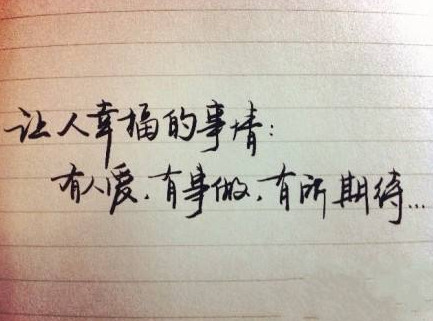 让人幸福的事情:
有人爱，有事做，有所期待...